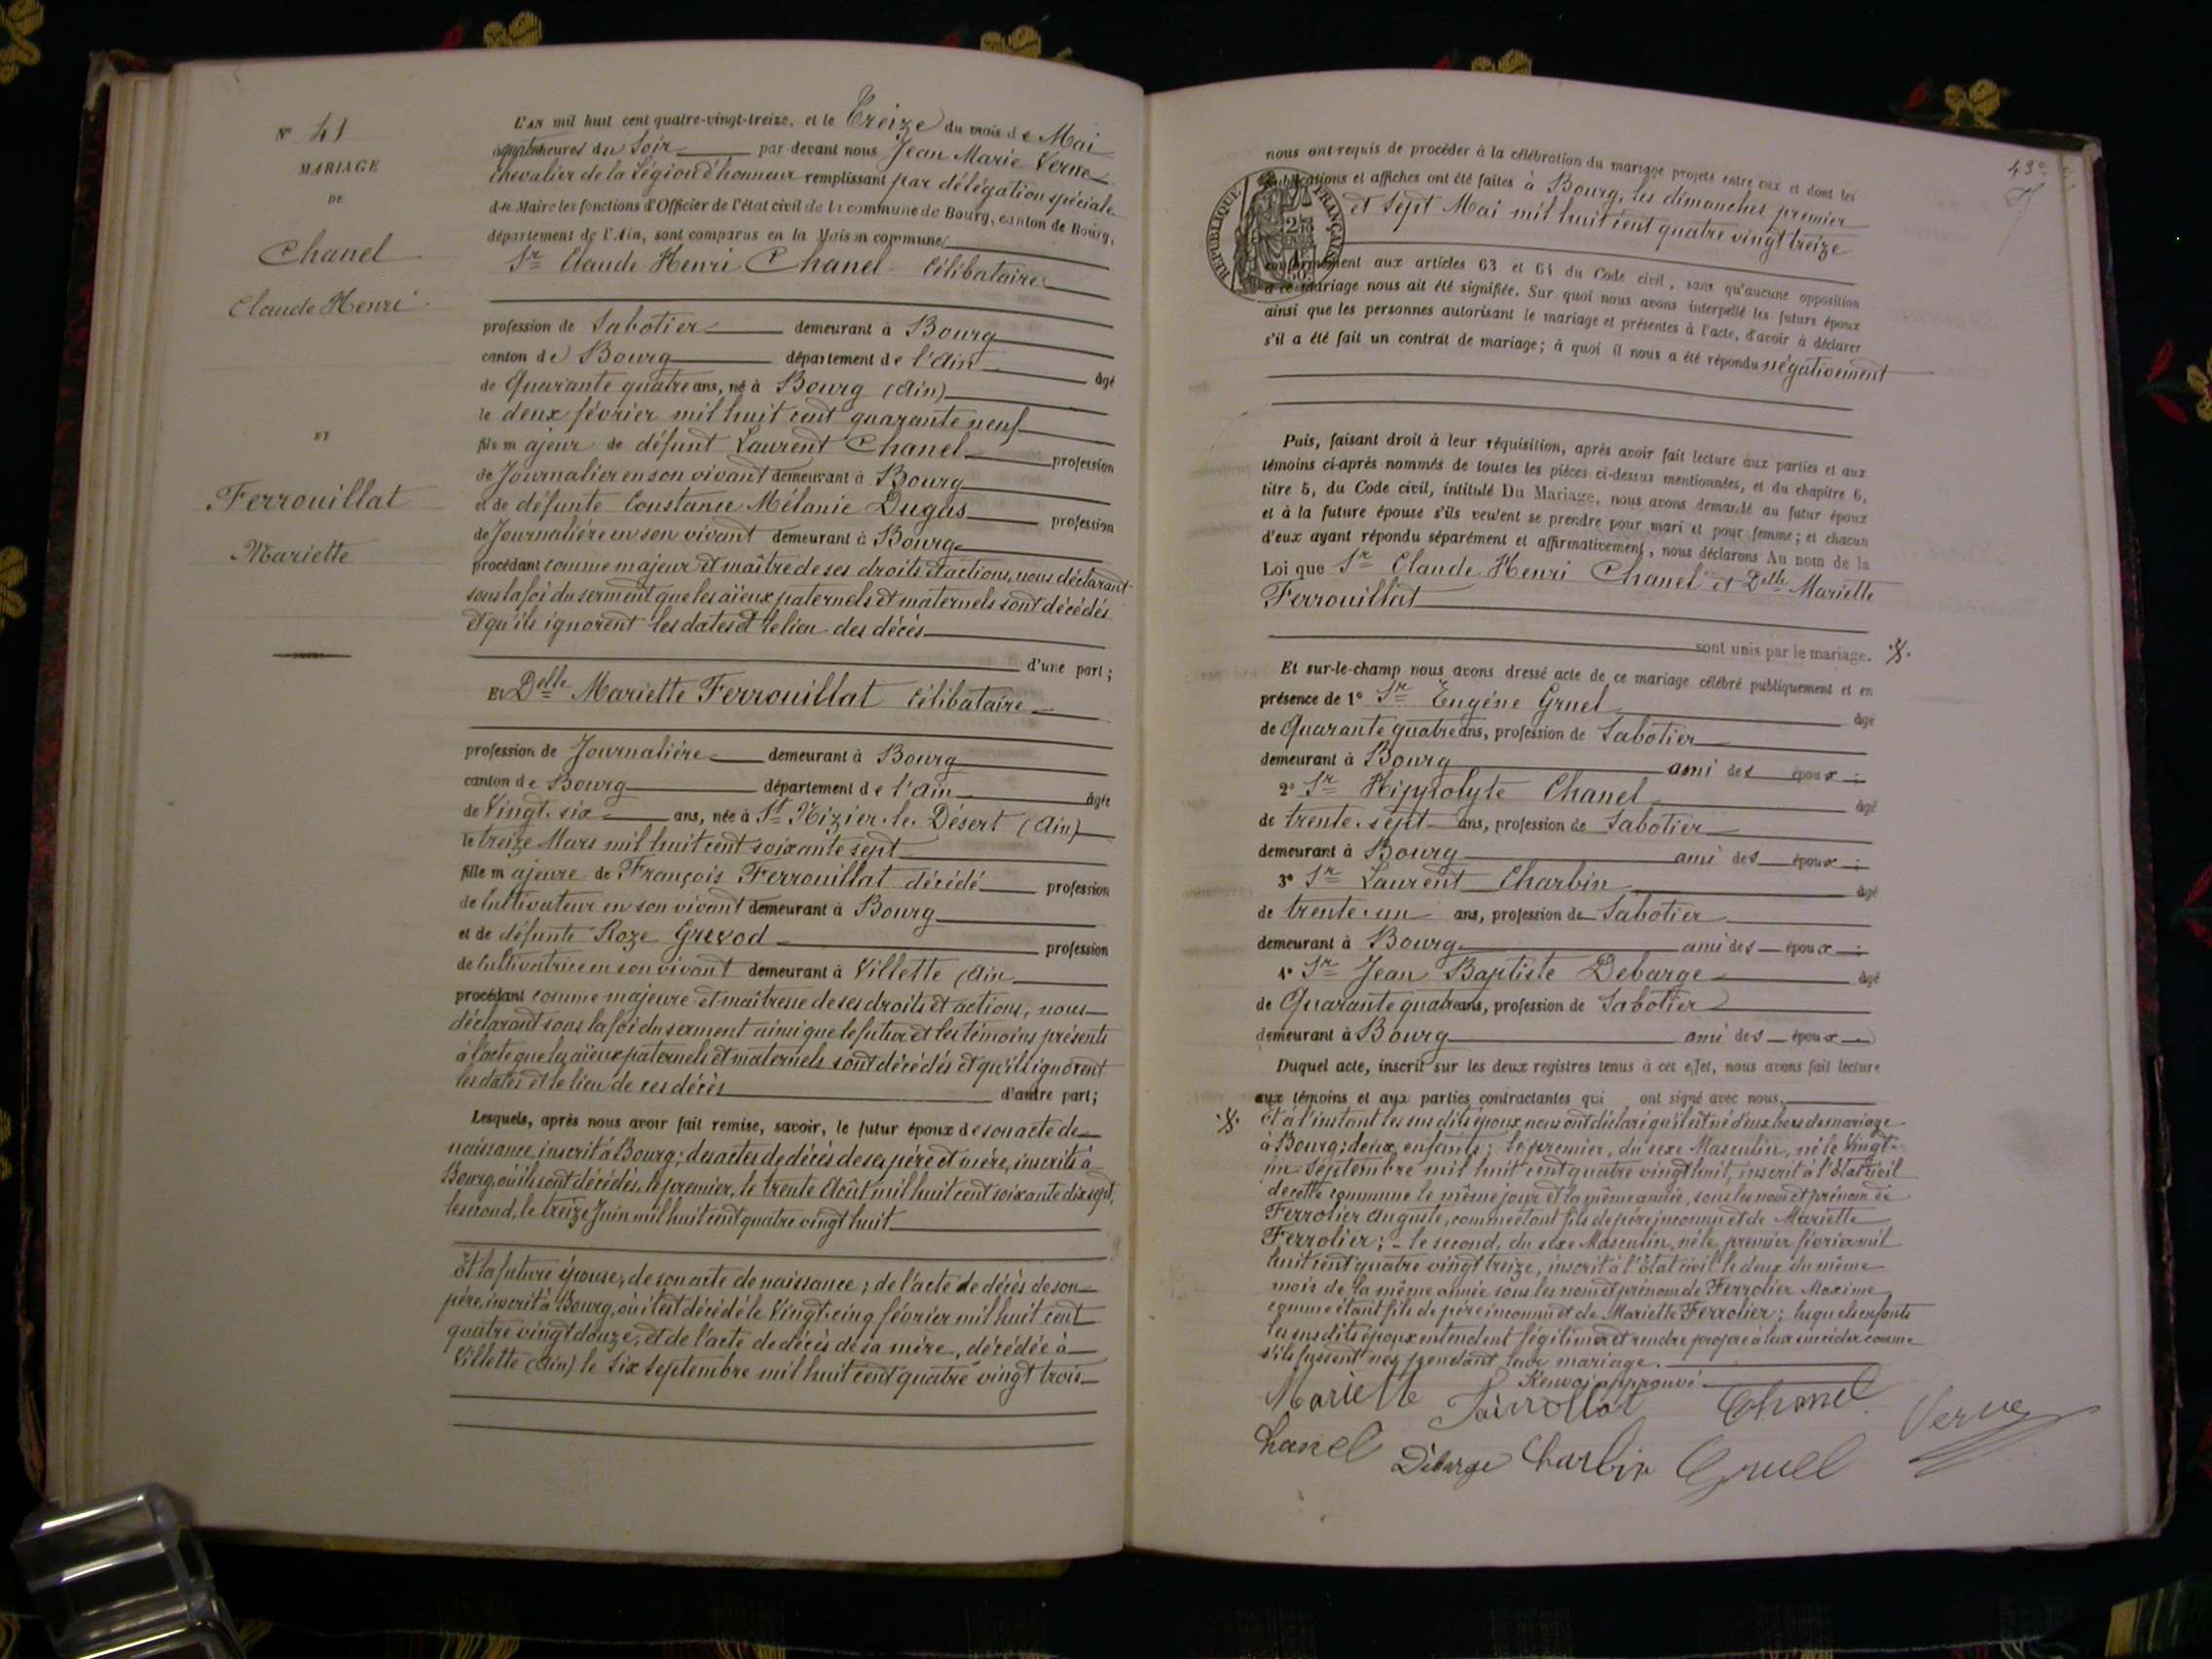 N° 41
MARIAGE
DE
Chanel
Claude Henri
ET
Ferrouillat
Mariette
L'AN mil huit cent quatre-vingt-treize, et le Treize du mois de Mai
heures du Soir par-devant nous Jean Marie Verne
Chevalier de la Légion d'honneur remplissant par délégation spéciale
du Maire les fonctions d'Officier de l'état civil de la commune de Bourg, canton de Bourg,
département de l'Ain, sont comparus en la Maison commune
Sr Claude Henri Chanel Célibataire
profession de Sabotier demeurant à Bourg
canton de Bourg département de l'Ain âgé
de Quarante quatre ans, né à Bourg (Ain)
le deux février mil huit cent quarante neuf
fils majeur de défunt Laurent Chanel profession
de Journalier en son vivant demeurant à Bourg
et de défunte Constance Mélanie Dugas profession
de Journalière en son vivant demeurant à Bourg
procédant comme majeur et maître de ses droits et actions, nous déclarant
sous la foi du serment que les aïeux paternels et maternels sont décédés
et qu'ils ignorent les dates et le lieu des décès
d'une part;
Et Delle Mariette Ferrouillat Célibataire
profession de Journalière demeurant à Bourg
canton de Bourg département de l'Ain âgée
de Vingt-six ans, née à St Nizier-le-Désert (Ain)
le treize Mars mil huit cent soixante sept
fille majeure de François Ferrouillat décédé profession
de Cultivateur en son vivant demeurant à Bourg
et de défunte Roze profession
de Cultivatrice en son vivant demeurant à Villette (Ain
procédant comme majeure et maîtresse de ses droits et actions, nous
déclarant sous la foi du serment ainsi que le futur et les témoins présents
à l'acte que les aïeux paternels et maternels sont décédés et qu'ils ignorent
les dates et le lieu de ces décès d'autre part;
Lesquels, après nous avoir fait remise, savoir, le futur époux de son acte de
naissance, inscrit à Bourg; des actes de décès de ses père et mère, inscrits à
Bourg, où ils sont décédés, le premier, le trente Août mil huit cent soixante dix sept,
le second, le treize Juin mil huit cent quatre vingt huit
Et la future épouse, de son acte de naissance; de l'acte de décès de son
père, inscrit à Bourg, où il est décédé le Vingt-cinq février mil huit cent
quatre vingt douze, et de l'acte de décès de sa mère, décédée à
Villette (Ain) le Six Septembre mil huit cent quatre vingt trois
43e
REPUBLIQUE FRANÇAISE
nous ont requis de procéder à la célébration du mariage projeté entre eux et dont les
publications et affiches ont été faites à Bourg, les dimanches premier
et Sept Mai mil huit cent quatre vingt treize
conformément aux articles 63 et 64 du Code civil, sans qu'aucune opposition
à ce mariage nous ait été signifiée. Sur quoi nous avons interpellé les futurs époux
ainsi que les personnes autorisant le mariage et présentes à l'acte, d'avoir à déclarer
s'il a été fait un contrat de mariage; à quoi il nous a été répondu négativement
Puis, faisant droit à leur réquisition, après avoir fait lecture aux parties et aux
témoins ci-après nommés de toutes les pièces ci-dessus mentionnées, et du chapitre 6,
titre 5, du Code civil, intitulé Du Mariage, nous avons demandé au futur époux
et à la future épouse s'ils veulent se prendre pour mari et pour femme; et chacun
d'eux ayant répondu séparément et affirmativement, nous déclarons Au nom de la
Loi que Sr Claude Henri Chanel et Delle Mariette
Ferrouillat
sont unis par le mariage.
Et sur-le-champ nous avons dressé acte de ce mariage célébré publiquement et en
présence de 1° Sr Eugène Gruel âgé
de Quarante quatre ans, profession de Sabotier
demeurant à Bourg ami des époux ;
2° Sr Hippolyte Chanel âgé
de trente-sept ans, profession de Sabotier
demeurant à Bourg ami des époux ;
3° Sr Laurent Charbin âgé
de trente-un ans, profession de Sabotier
demeurant à Bourg ami des époux ;
4° Sr Jean Baptiste Debarge âgé
de Quarante quatre ans, profession de Sabotier
demeurant à Bourg ami des époux
Duquel acte, inscrit sur les deux registres tenus à cet effet, nous avons fait lecture
aux témoins et aux parties contractantes qui ont signé avec nous.
Et à l'instant les susdits époux nous ont déclaré qu'il est né d'eux hors de mariage
à Bourg; deux enfants; le premier, du sexe Masculin, né le Vingt-
un Septembre mil huit cent quatre vingt huit, inscrit à l'Etat civil
de cette commune le même jour et la même année, sous les nom et prénom de
Ferrolier Auguste, comme étant fils de père inconnu et de Mariette
Ferrolier; - le second, du sexe Masculin, né le premier février mil
huit cent quatre vingt treize, inscrit à l'Etat civil le deux du même
mois de la même année sous les nom et prénom de Ferrolier Maxime
comme étant fils de père inconnu et de Mariette Ferrolier; lesquels enfants
les susdits époux entendent légitimer et rendre propre à leur succéder comme
s'ils fussent nés pendant leur mariage.
Renvoi approuvé
Mariette Chanel Verne
Chanel Debarge Charbin Gruel